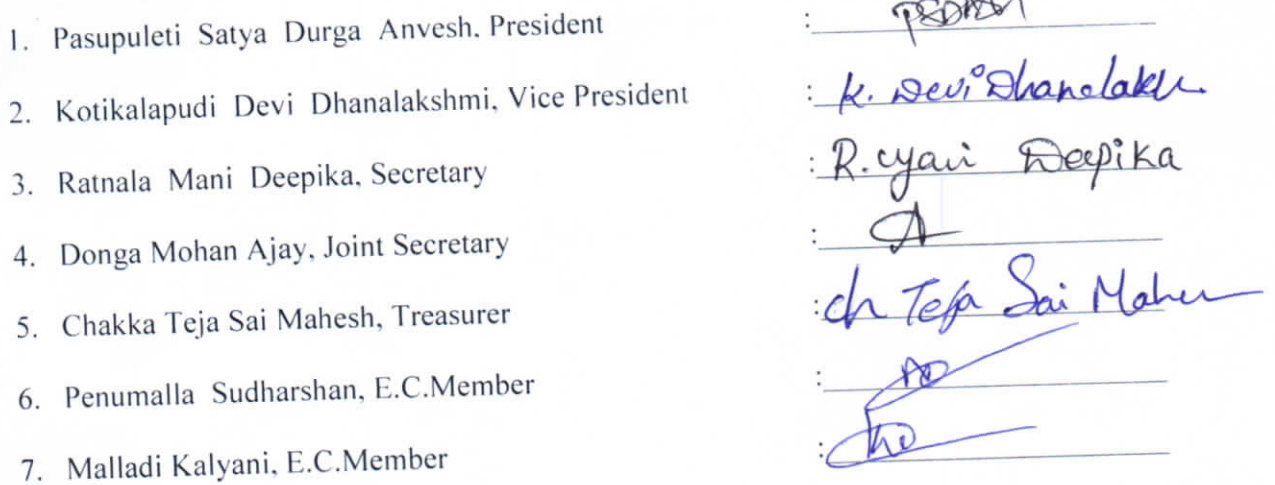 1. Pasupuleti Satya Durga Anvesh. President :
2. Kotikalapudi Devi Dhanalakshmi, Vice President : K. Devi Dhanalaksh
3. Ratnala Mani Deepika, Secretary : R. Deepika
4. Donga Mohan Ajay, Joint Secretary :
5. Chakka Teja Sai Mahesh, Treasurer : ch Teja Sai Mahes
6. Penumalla Sudharshan, E.C.Member :
7. Malladi Kalyani, E.C.Member :